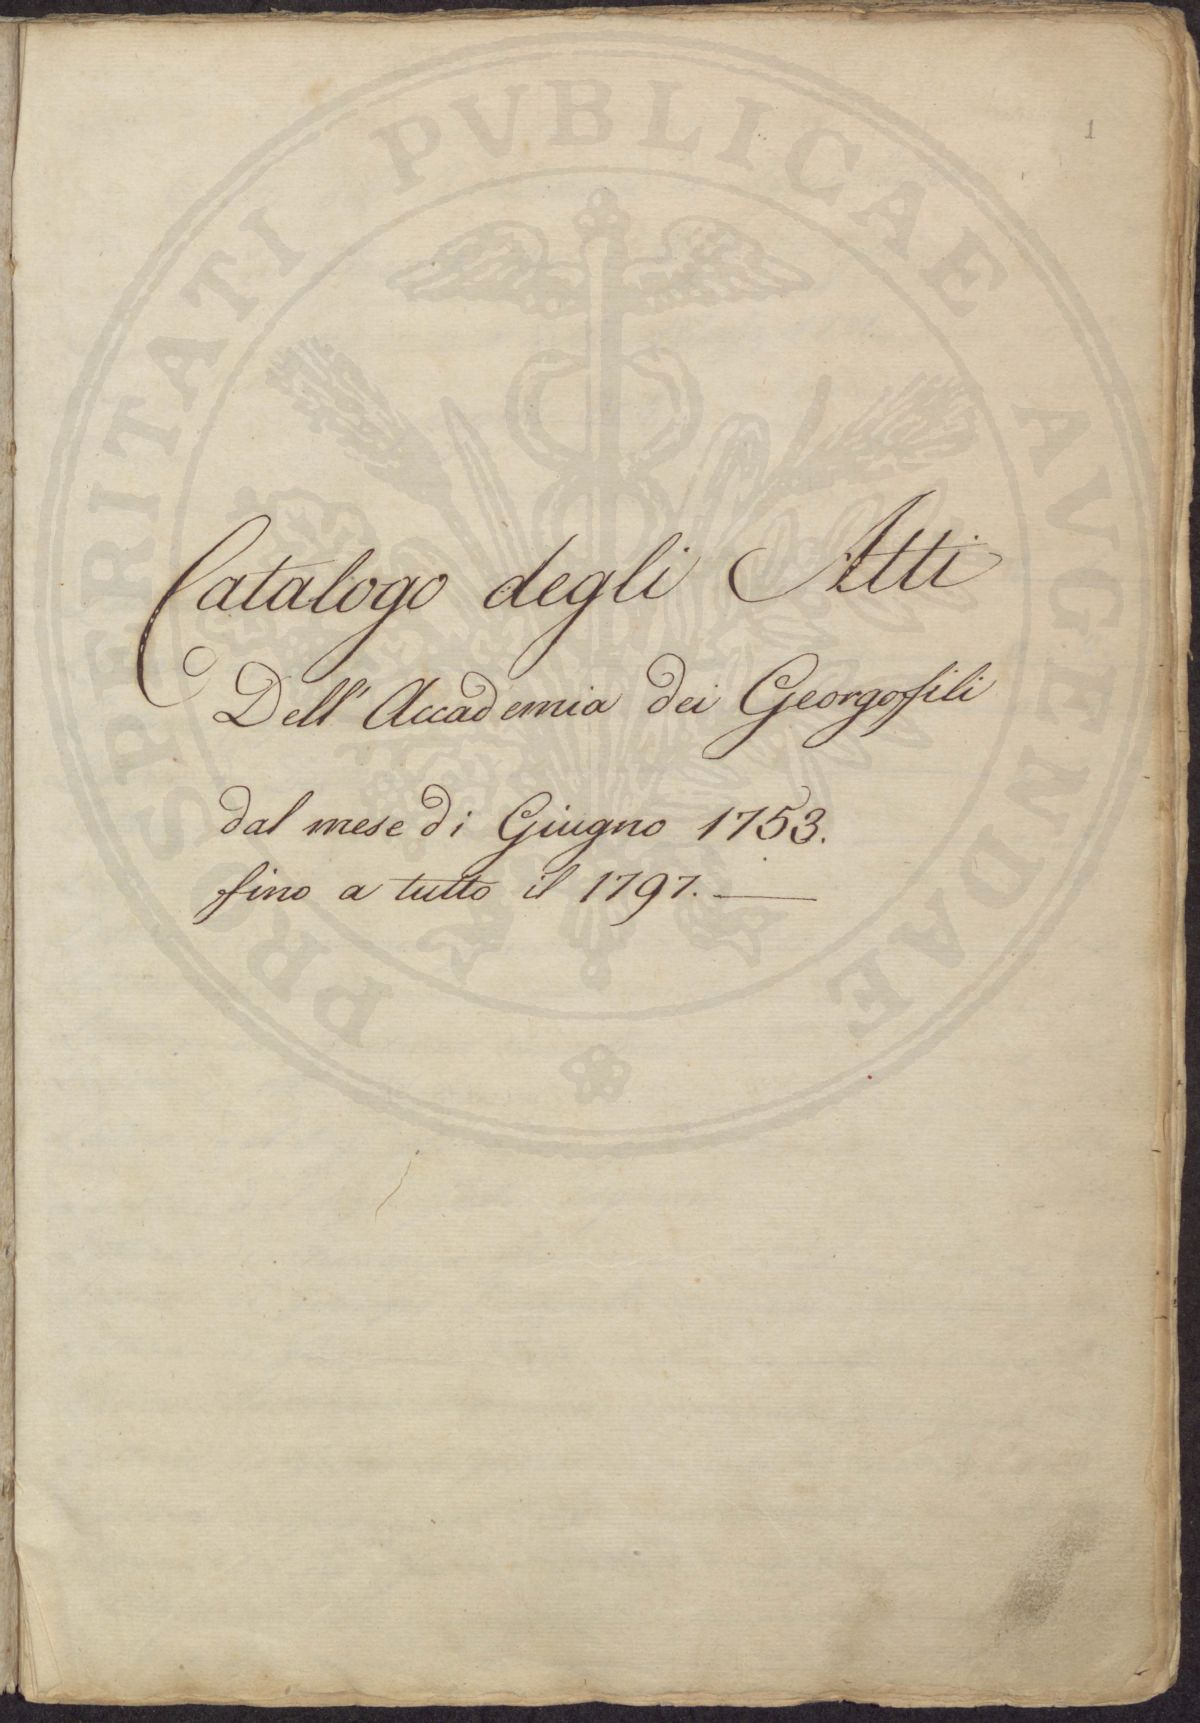 1
PROSPERITATI PVBLICAE AVGENDAE
Catalogo degli Atti
Dell' Accademia dei Georgofili
dal mese di Giugno 1753.
fino a tutto il 1797. —